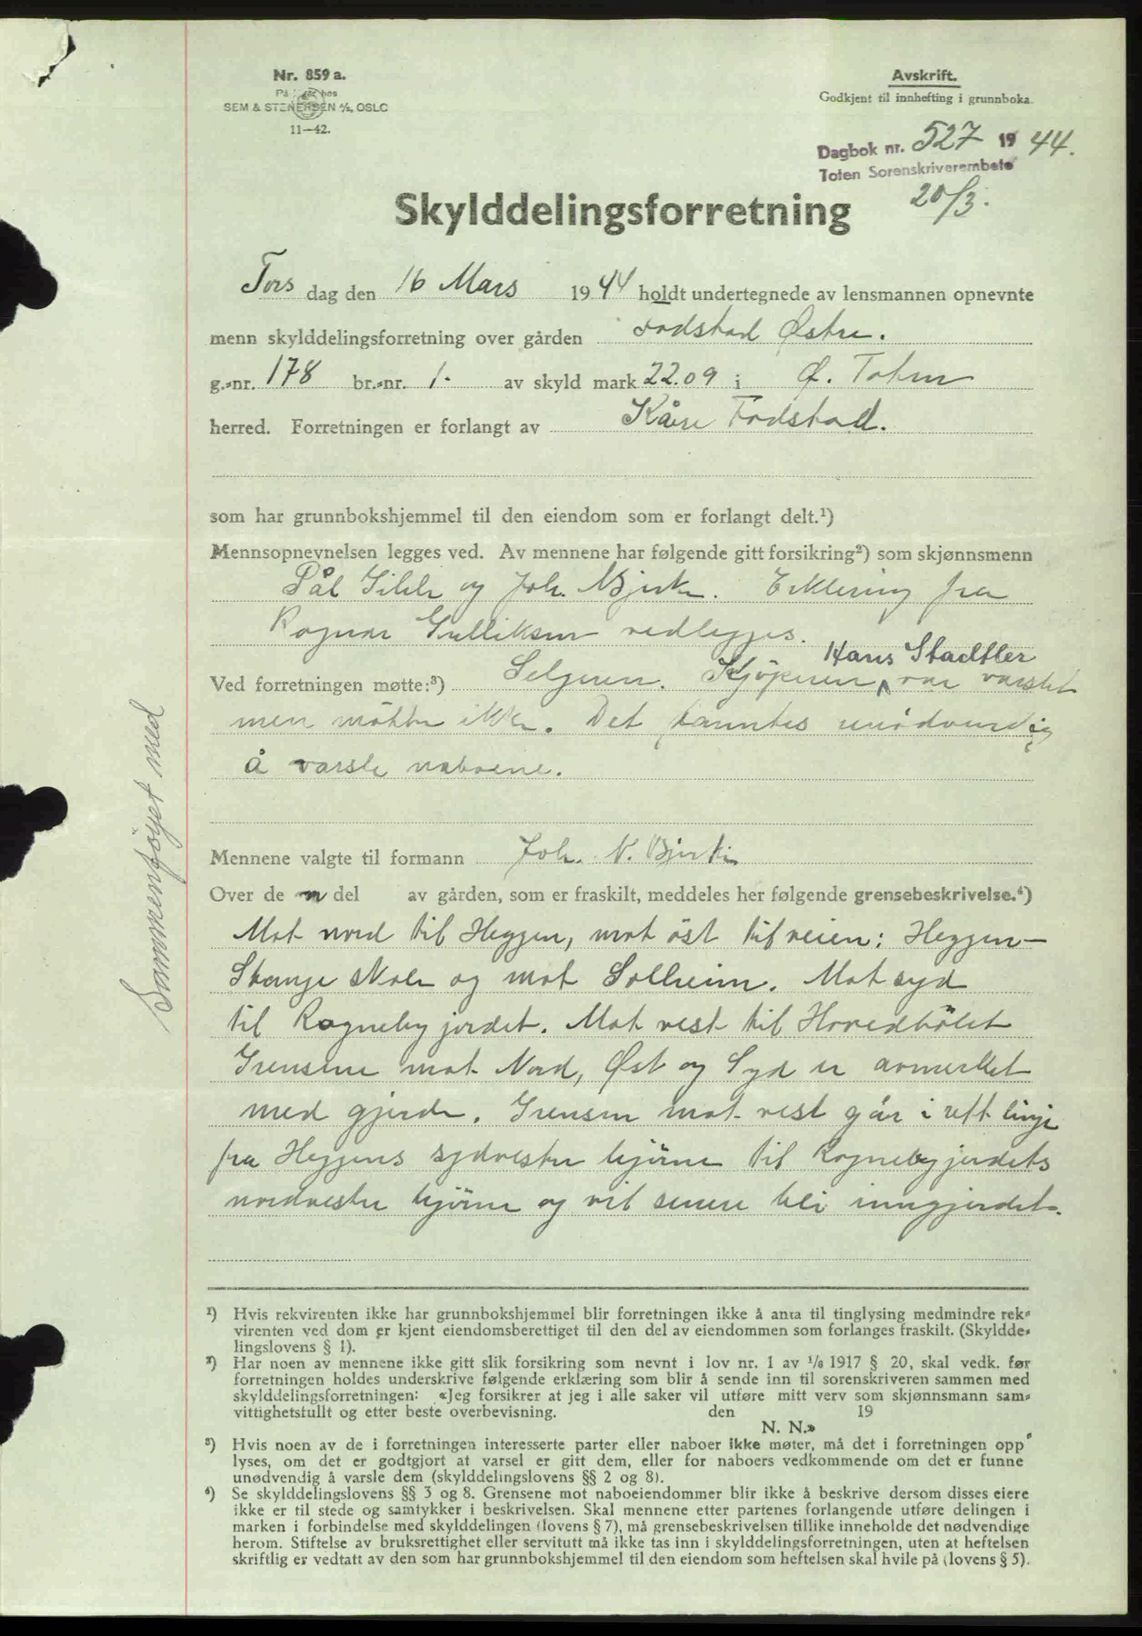 Nr. 859 a.
SEM & STENERSEN A/S, OSLO
11—42.
Avskrift.
Godkjent til innhefting i grunnboka.
Dagbok nr. 527 1944.
Toten Sorenskriverembete
20/3.
Skylddelingsforretning
Tors dag den 16 Mars 1944 holdt undertegnede av lensmannen opnevnte
menn skylddelingsforretning over gården Fodstad Østre.
g.-nr. 178 br.-nr. 1. av skyld mark 22.09 i Ø. Toten
herred. Forretningen er forlangt av Kåre Fodstad.
som har grunnbokshjemmel til den eiendom som er forlangt delt.¹)
Mennsopnevnelsen legges ved. Av mennene har følgende gitt forsikring²) som skjønnsmenn
Pål Sille og Joh. N. Bjerke. Erklering fra
Ragnar Gulliksen vedlegges.
Hans Stadtler
Ved forretningen møtte:³) Selgeren. Kjøperen var varslet
men møtte ikke. Det fanntes unødvendig
å varsle naboene.
Mennene valgte til formann Joh. N. Bjerke
Over de n del av gården, som er fraskilt, meddeles her følgende grensebeskrivelse.⁴)
Mot nord til Heggen, mot øst til veien: Heggen-
Stange skole og mot Solheim. Mot syd
til Rognebyjordet. Mot vest til Hovedbølet
Grensene mot Nord, Øst og Syd er avmerket
med gjerde. Grensen mot vest går i rett linje
fra Heggens sydvestre hjørne til Rognebyjordets
nordvestre hjørne og vil senere bli inngjerdet.
Sammenføyet med
¹) Hvis rekvirenten ikke har grunnbokshjemmel blir forretningen ikke å anta til tinglysing medmindre rek-
virenten ved dom er kjent eiendomsberettiget til den del av eiendommen som forlanges fraskilt. (Skyldde-
lingslovens § 1).
²) Har noen av mennene ikke gitt slik forsikring som nevnt i lov nr. 1 av 1/6 1917 § 20, skal vedk. før
forretningen holdes underskrive følgende erklæring som blir å sende inn til sorenskriveren sammen med
skylddelingsforretningen: «Jeg forsikrer at jeg i alle saker vil utføre mitt verv som skjønnsmann sam-
vittighetsfullt og etter beste overbevisning. den 19
N. N.»
³) Hvis noen av de i forretningen interesserte parter eller naboer ikke møter, må det i forretningen opp-
lyses, om det er godtgjort at varsel er gitt dem, eller for naboers vedkommende om det er funne
unødvendig å varsle dem (skylddelingslovens §§ 2 og 8).
⁴) Se skylddelingslovens §§ 3 og 8. Grensene mot naboeiendommer blir ikke å beskrive dersom disses eiere
ikke er til stede og samtykker i beskrivelsen. Skal mennene etter partenes forlangende utføre delingen i
marken i forbindelse med skylddelingen (lovens § 7), må grensebeskrivelsen tillike inneholde det nødvendige
herom. Stiftelse av bruksrettighet eller servitutt må ikke tas inn i skylddelingsforretningen, uten at heftelsen
skriftlig er vedtatt av den som har grunnbokshjemmel til den eiendom som heftelsen skal hvile på (lovens § 5).